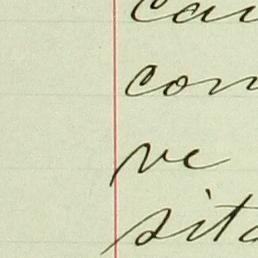 cau
con
ve
sita